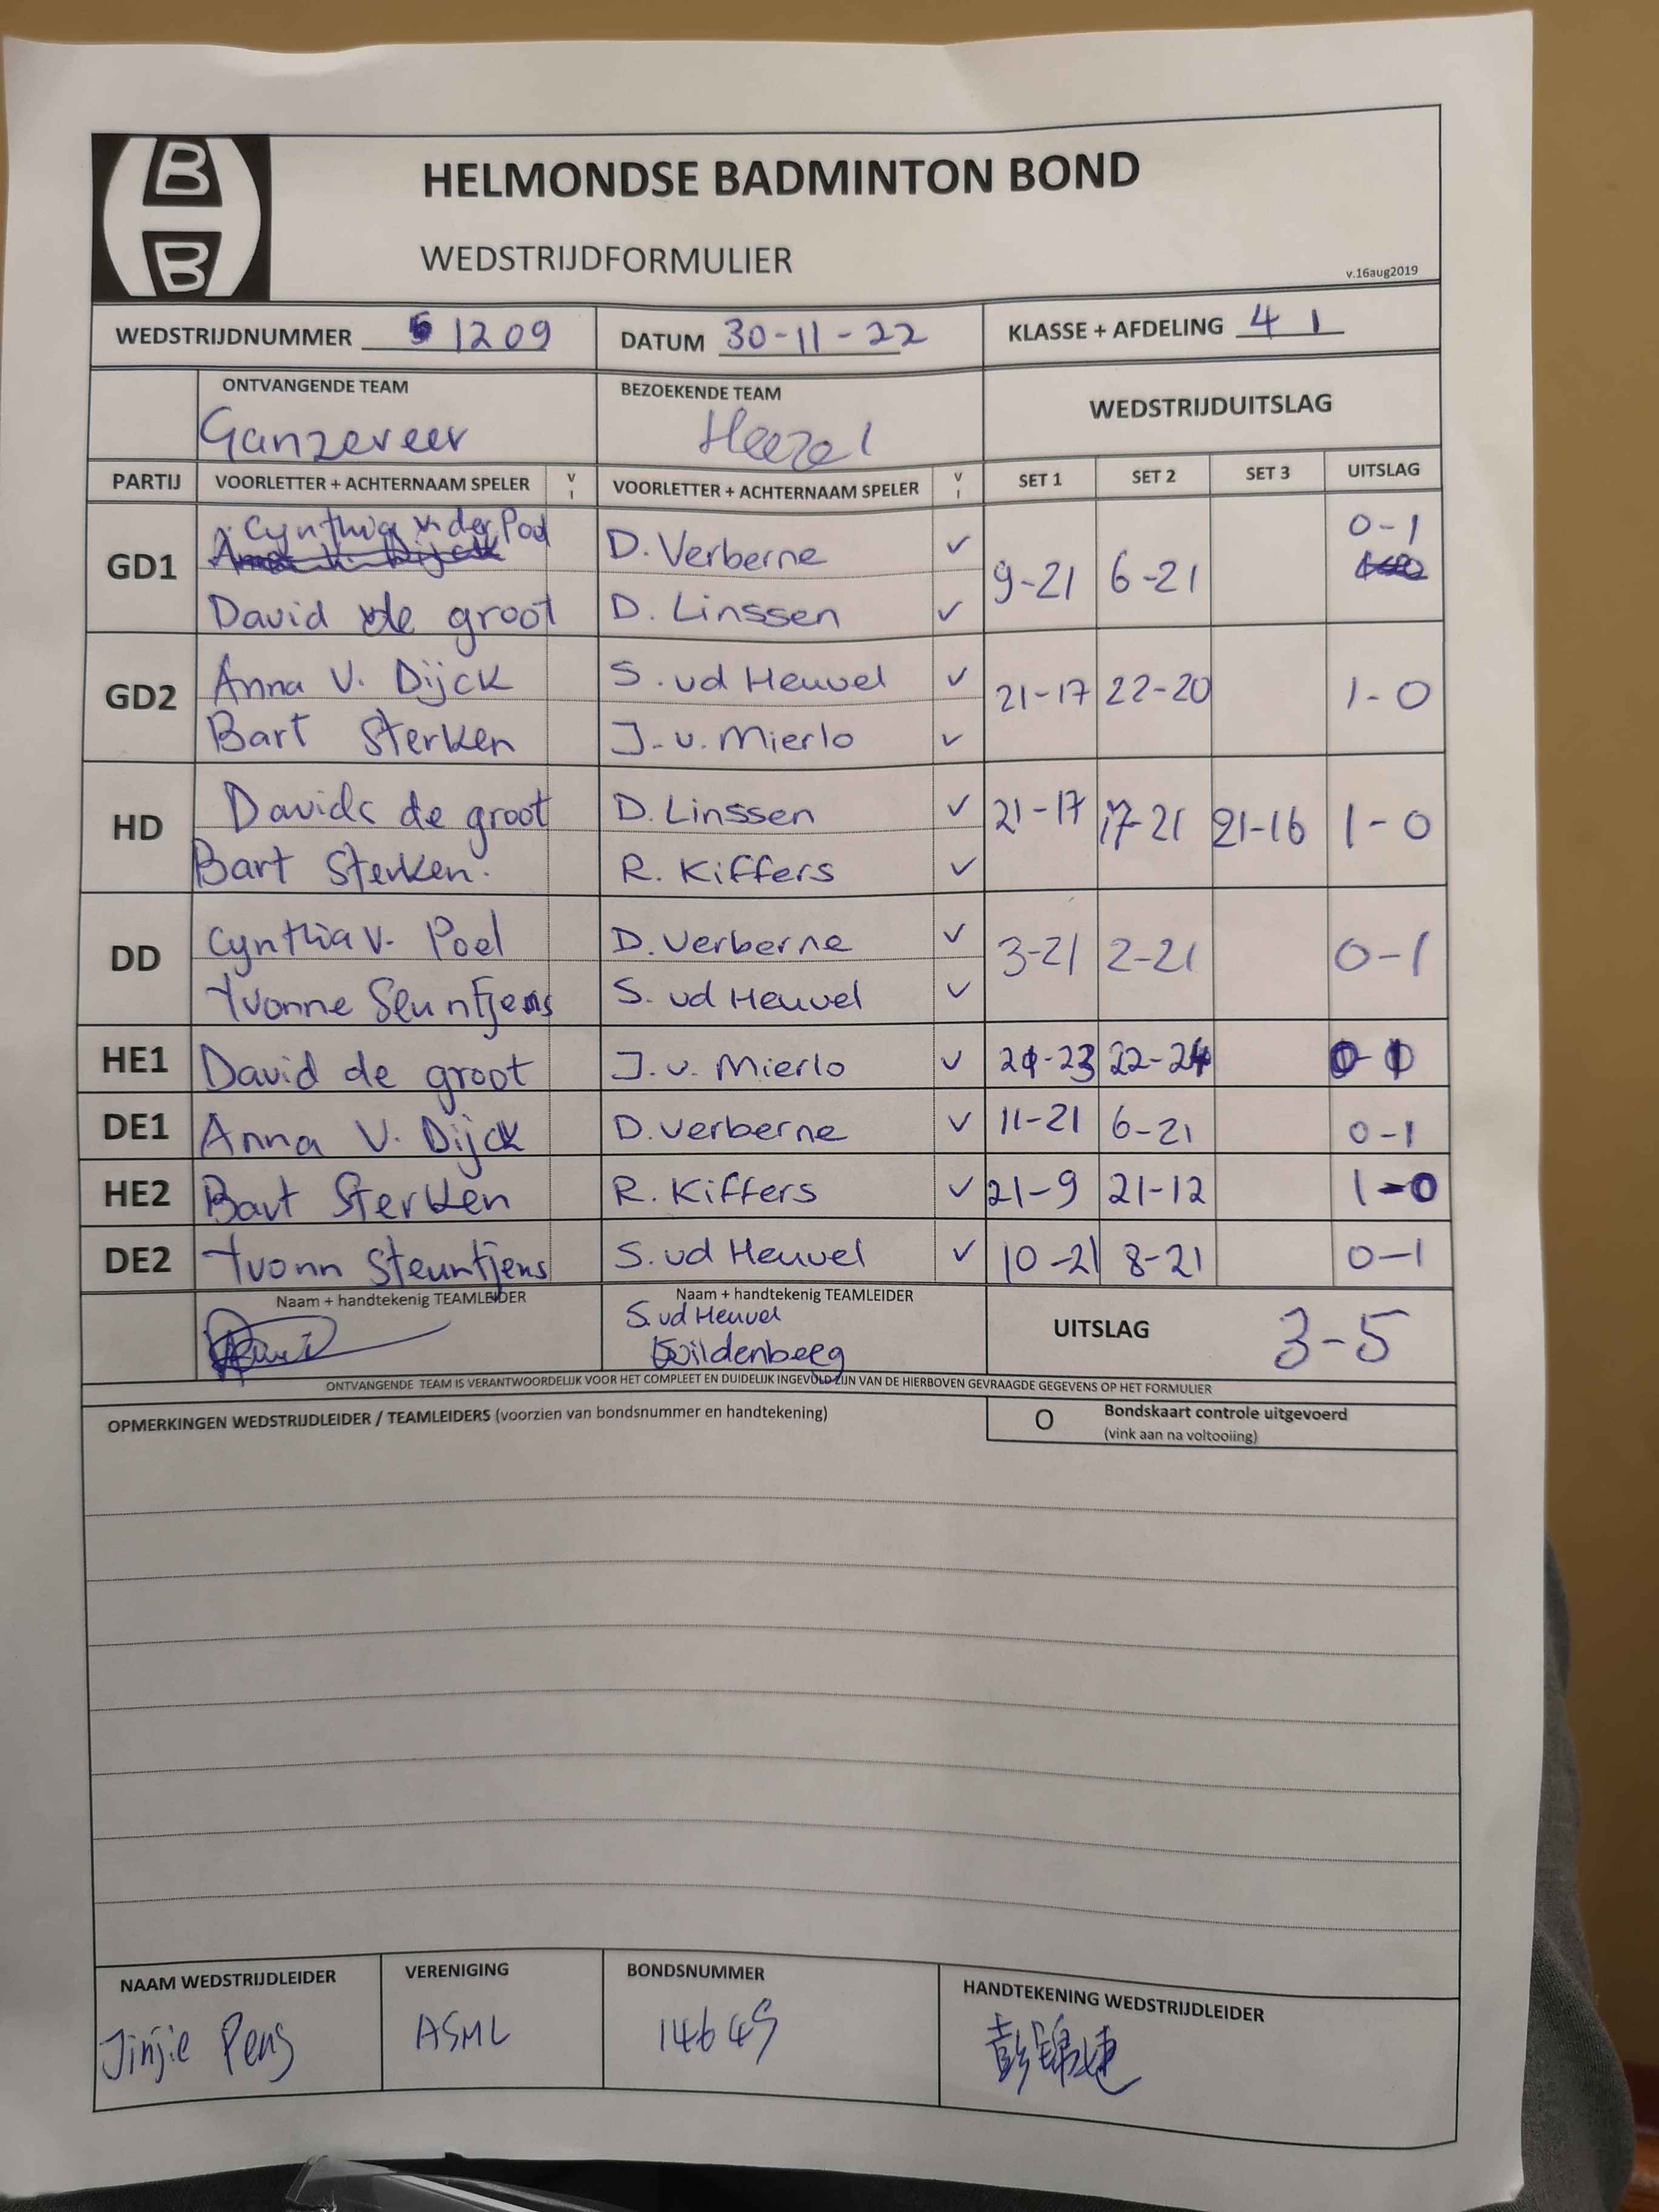 B
B
HELMONDSE BADMINTON BOND
WEDSTRIJDFORMULIER
v.16aug2019
WEDSTRIJDNUMMER 1209 DATUM 30-11-22 KLASSE + AFDELING 4 1
ONTVANGENDE TEAM BEZOEKENDE TEAM WEDSTRIJDUITSLAG
Ganzeveer Heeze 1
PARTIJ VOORLETTER + ACHTERNAAM SPELER V I VOORLETTER + ACHTERNAAM SPELER V I SET 1 SET 2 SET 3 UITSLAG
GD1 Cynthia v. der Poel D. Verberne ✓ 9-21 6-21 0-1
David de groot D. Linssen ✓
GD2 Anna V. Dijck S. vd Heuvel ✓ 21-17 22-20 1-0
Bart Sterken J. v. Mierlo ✓
HD Davids de groot D. Linssen ✓ 21-17 17-21 21-16 1-0
Bart Sterken. R. Kiffers ✓
DD Cynthia v. Poel D. Verberne ✓ 3-21 2-21 0-1
Yvonne Seuntjens S. vd Heuvel ✓
HE1 David de groot J. v. Mierlo ✓ 21-23 22-24 0-1
DE1 Anna V. Dijck D. Verberne ✓ 11-21 6-21 0-1
HE2 Bart Sterken R. Kiffers ✓ 21-9 21-12 1-0
DE2 Yvonn Steuntjens S. vd Heuvel ✓ 10-21 8-21 0-1
Naam + handtekenig TEAMLEIDER Naam + handtekenig TEAMLEIDER UITSLAG 3-5
S. vd Heuvel
ONTVANGENDE TEAM IS VERANTWOORDELIJK VOOR HET COMPLEET EN DUIDELIJK INGEVULD ZIJN VAN DE HIERBOVEN GEVRAAGDE GEGEVENS OP HET FORMULIER
OPMERKINGEN WEDSTRIJDLEIDER / TEAMLEIDERS (voorzien van bondsnummer en handtekening)
O Bondskaart controle uitgevoerd
(vink aan na voltooiing)
NAAM WEDSTRIJDLEIDER VERENIGING BONDSNUMMER HANDTEKENING WEDSTRIJDLEIDER
Jinjie Peng ASML 14649 彭锦捷